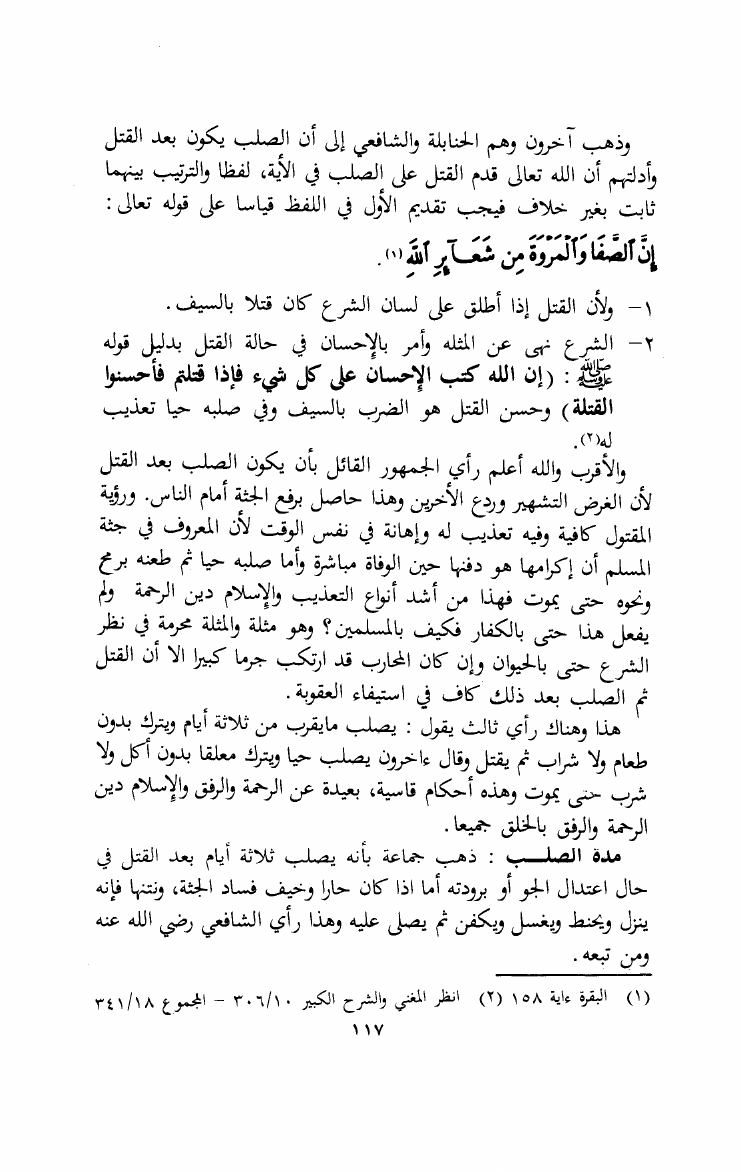 وذهب آخرون وهم الحنابلة والشافعي إلى أن الصلب يكون بعد القتل
وأدلتهم أن الله تعالى قدم القتل على الصلب في الأية، لفظا والترتيب بينهما
ثابت بغير خلاف فيجب تقديم الأول في اللفظ قياسا على قوله تعالى :
إِنَّ ٱلصَّفَا وَٱلْمَرْوَةَ مِن شَعَـآئِرِ ٱللَّهِ (١).
١- ولأن القتل إذا أطلق على لسان الشرع كان قتلا بالسيف.
٢- الشرع نهى عن المثله وأمر بالإحسان في حالة القتل بدليل قوله
ﷺ : (إن الله كتب الإحسان على كل شيء فإذا قتلتم فأحسنوا
القتلة) وحسن القتل هو الضرب بالسيف وفي صلبه حيا تعذيب
له(٢).
والأقرب والله أعلم رأي الجمهور القائل بأن يكون الصلب بعد القتل
لأن الغرض التشهير وردع الأخرين وهذا حاصل برفع الجثة أمام الناس. ورؤية
المقتول كافية وفيه تعذيب له وإهانة في نفس الوقت لأن المعروف في جثة
المسلم أن إكرامها هو دفنها حين الوفاة مباشرة وأما صلبه حيا ثم طعنه برمح
ونحوه حتى يموت فهذا من أشد أنواع التعذيب والإسلام دين الرحمة ولم
يفعل هذا حتى بالكفار فكيف بالمسلمين؟ وهو مثلة والمثلة محرمة في نظر
الشرع حتى بالحيوان وإن كان المحارب قد ارتكب جرما كبيرا الا أن القتل
ثم الصلب بعد ذلك كاف في استيفاء العقوبة.
هذا وهناك رأي ثالث يقول : يصلب مايقرب من ثلاثة أيام ويترك بدون
طعام ولا شراب ثم يقتل وقال ءاخرون يصلب حيا ويترك معلقا بدون أكل ولا
شرب حتى يموت وهذه أحكام قاسية، بعيدة عن الرحمة والرفق والإسلام دين
الرحمة والرفق بالخلق جميعا.
مدة الصلـــب : ذهب جماعة بأنه يصلب ثلاثة أيام بعد القتل في
حال اعتدال الجو أو برودته أما اذا كان حارا وخيف فساد الجثة، ونتنها فإنه
ينزل ويحنط ويغسل ويكفن ثم يصلى عليه وهذا رأي الشافعي رضي الله عنه
ومن تبعه.
(١) البقرة ءاية ١٥٨ (٢) انظر المغني والشرح الكبير ٣٠٦/١٠ – المجموع ٣٤١/١٨
١١٧